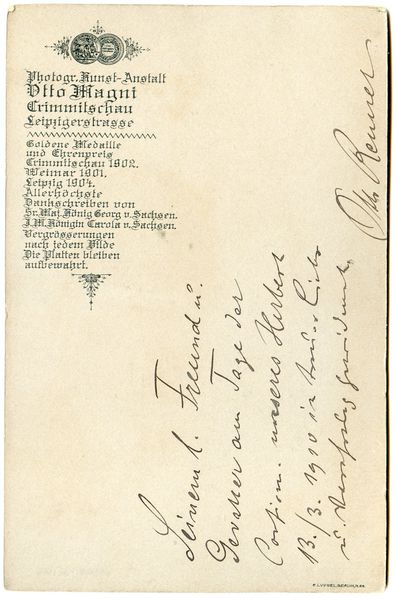 Photogr. Kunst-Anstalt
Otto Magni
Crimmitschau
Leipzigerstrasse
Goldene Medaille
und Ehrenpreis
Crimmitschau 1902.
Weimar 1901.
Leipzig 1904.
Allerhöchste
Dankschreiben von
Sr. Maj. König Georg v. Sachsen.
I. M. Königin Carola v. Sachsen.
Vergrösserungen
nach jedem Bilde
Die Platten bleiben
aufbewahrt.
Seinem l. Freund u.
Gevatter am Tage der
Confirm. unseres Herbert
13./3. 1910 in treuer Liebe
u. gewidmet
Otto